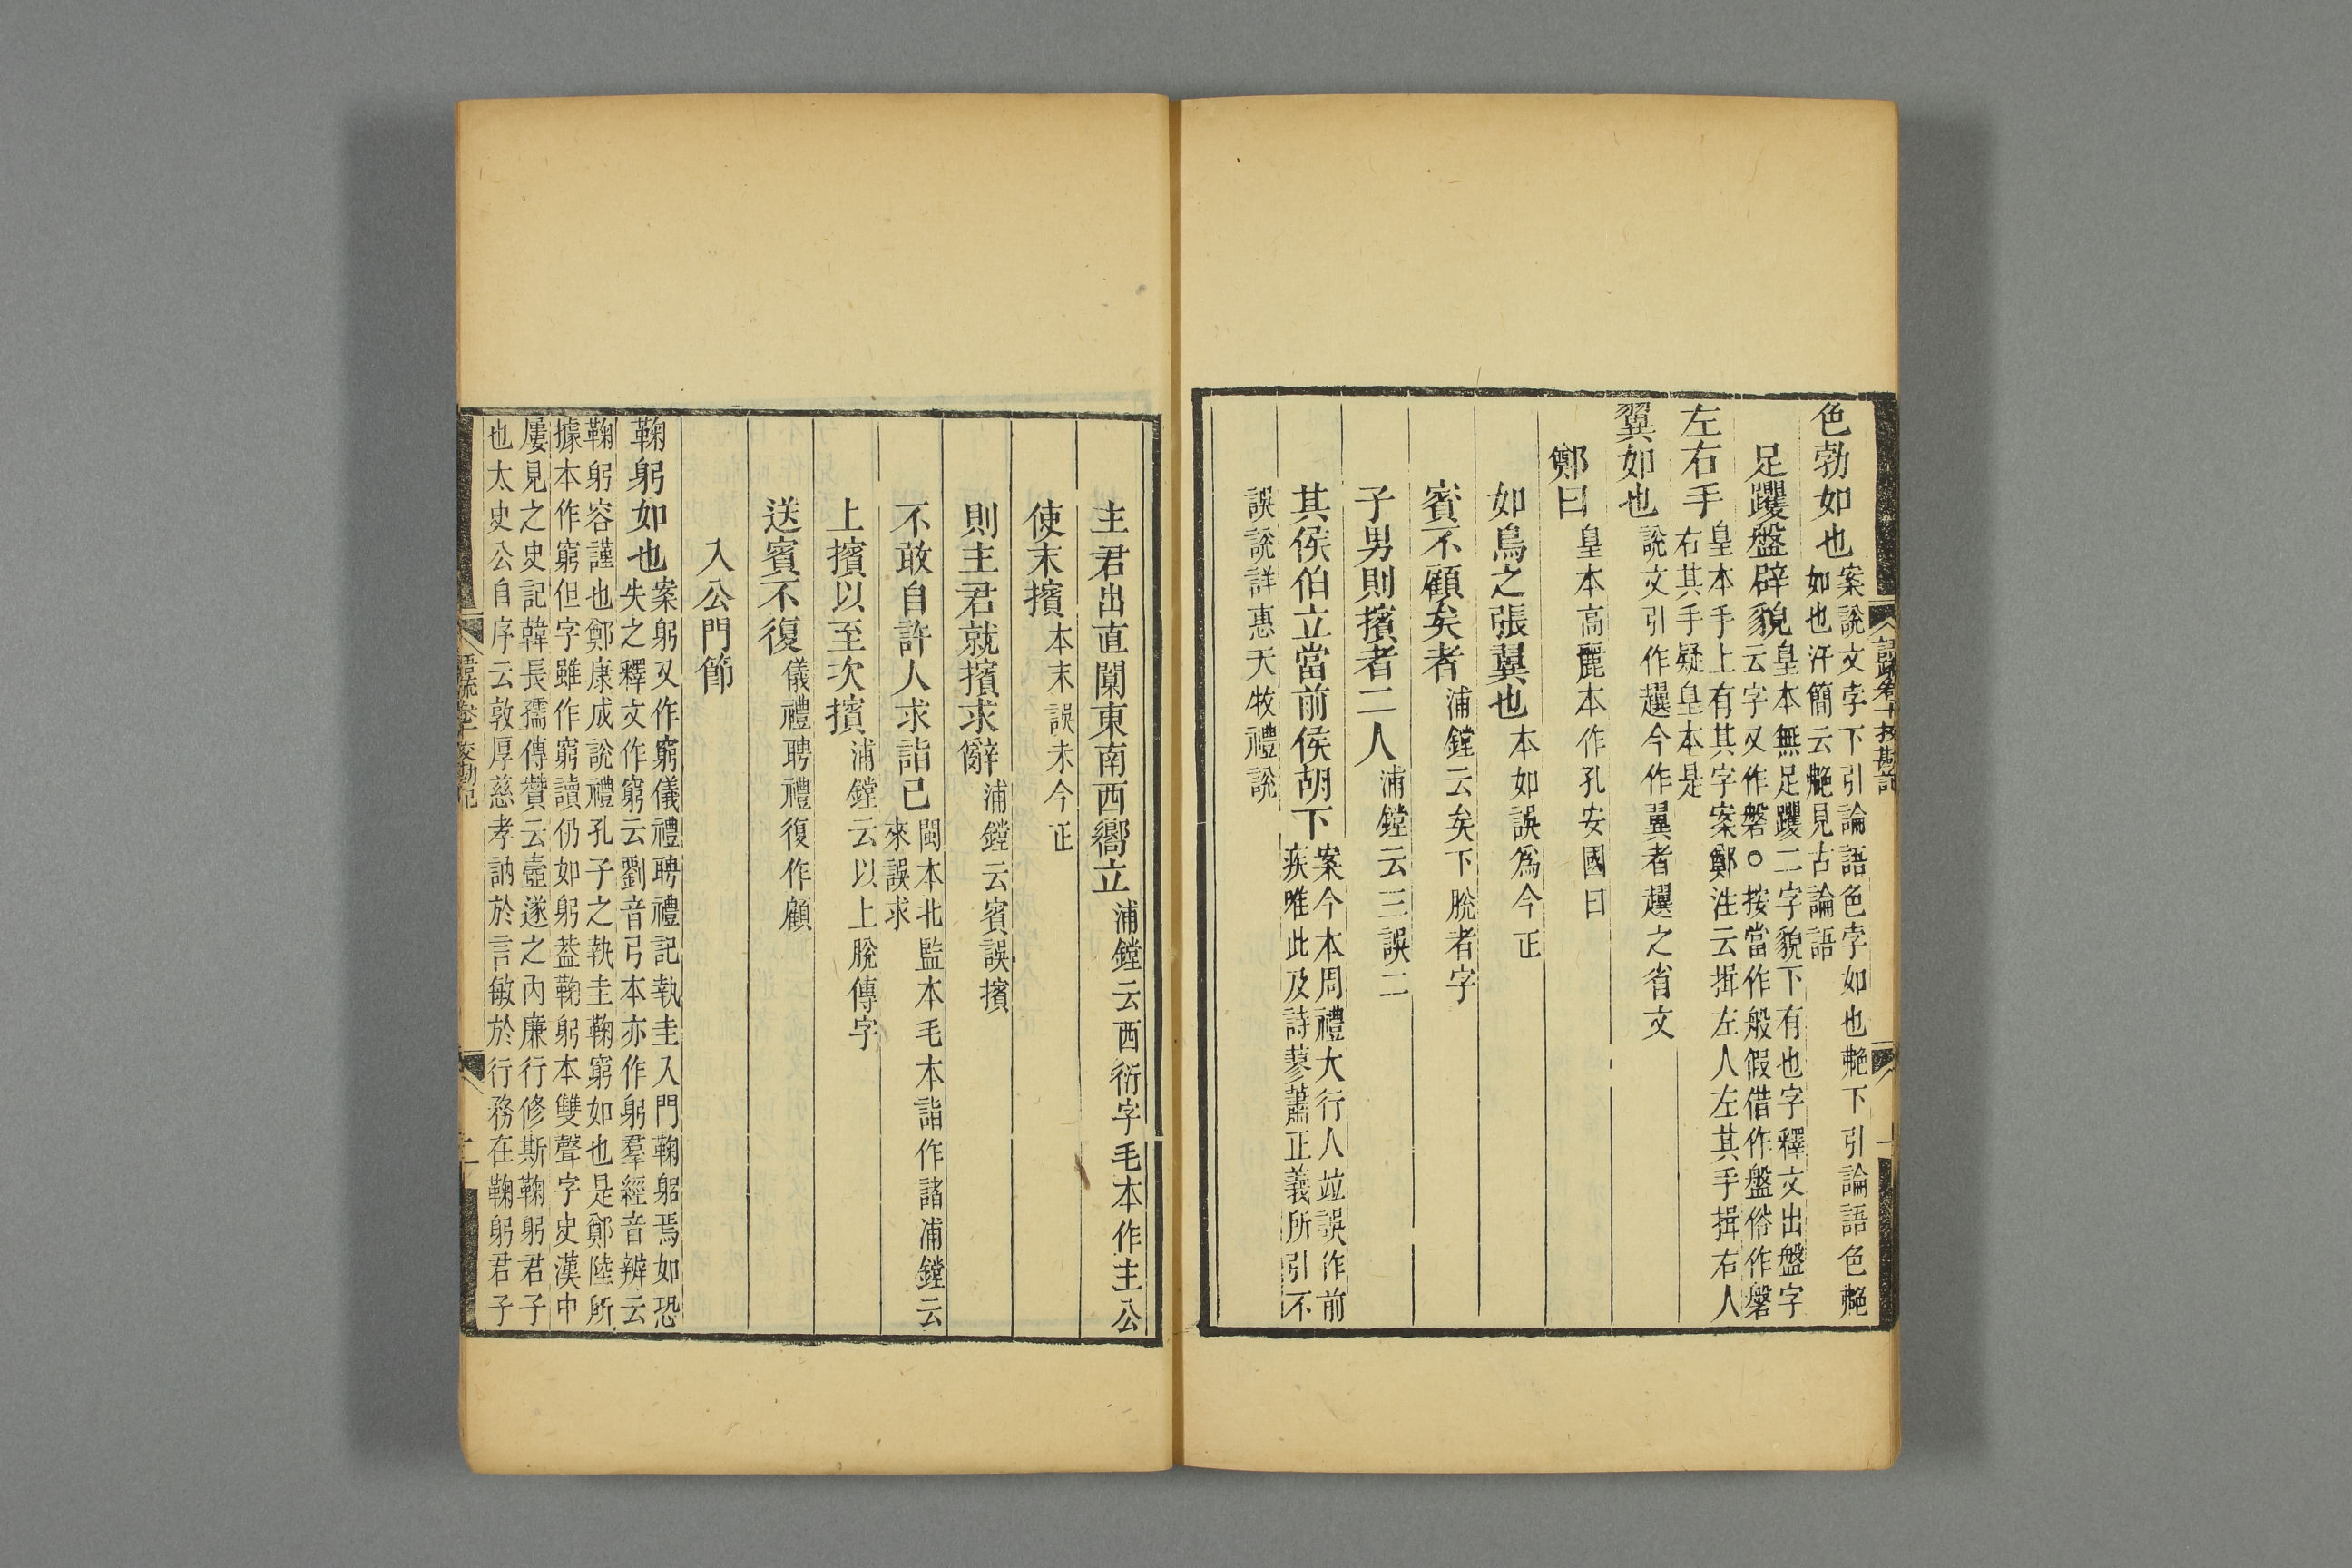 色勃如也案說文孛下引論語色孛如也䒈下引論語色䒈
如也汗簡云䒈見古論語
足躩盤辟貌皇本無足躩二字貌下有也字釋文出盤字
云字又作磐○按當作般假借作盤俗作磐
左右手皇本手上有其字案鄭注云揖左人左其手揖右人
右其手疑皇本是
翼如也說文引作趩今作翼者趩之省文
鄭曰皇本高麗本作孔安國曰
如鳥之張翼也本如誤爲今正
賓不顧矣者浦鏜云矣下脫者字
子男則擯者二人浦鏜云三誤二
其侯伯立當前侯胡下案今本周禮大行人竝誤作前
疾唯此及詩蓼蕭正義所引不
誤說詳惠天牧禮說
主君出直闑東南西嚮立浦鏜云西衍字毛本作主公
使末擯本末誤未今正
則主君就擯求辭浦鏜云賓誤擯
不敢自許人求詣已閩本北監本毛本詣作諸浦鏜云
來誤求
上擯以至次擯浦鏜云以上脫傳字
送賓不復儀禮聘禮復作顧
入公門節
鞠躬如也案躬又作窮儀禮聘禮記執圭入門鞠躬焉如恐
失之釋文作窮云劉音弓本亦作躬羣經音辨云
鞠躬容謹也鄭康成說禮孔子之執圭鞠窮如也是鄭陸所
據本作窮但字雖作窮讀仍如躬葢鞠躬本雙聲字史漢中
屢見之史記韓長孺傳贊云壺遂之內廉行修斯鞠躬君子
也太史公自序云敦厚慈孝訥於言敏於行務在鞠躬君子